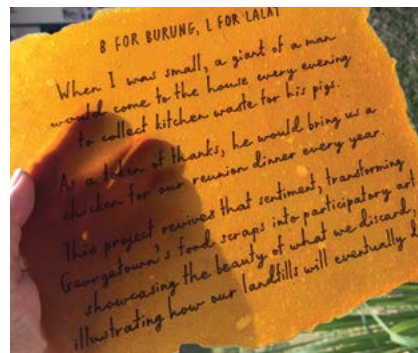 B FOR BURUNG, L FOR LALAT
When I was small, a giant of a man
would come to the house every evening
to collect kitchen waste for his pigs.
As a token of thanks, he would bring us a
chicken for our reunion dinner every year.
This project revives that sentiment, transforming
Georgetown's food scraps into participatory art
showcasing the beauty of what we discard,
illustrating how our landfills will eventually